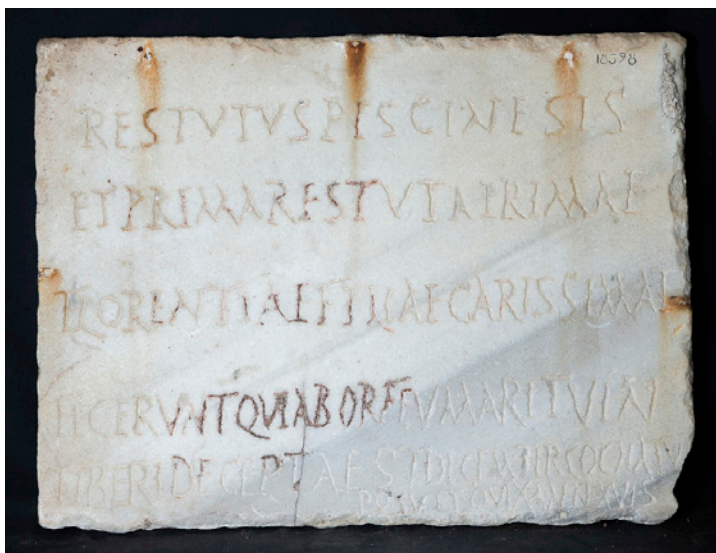 18598
RESTVTVSPISCINESIS
ETPRIMARESTVTAPRIMAE
FLORENTIAEFILIAECARISSIMAE
FECERVNTQVIABORFEVMARITVIN
TIBERIDECEPTAEST